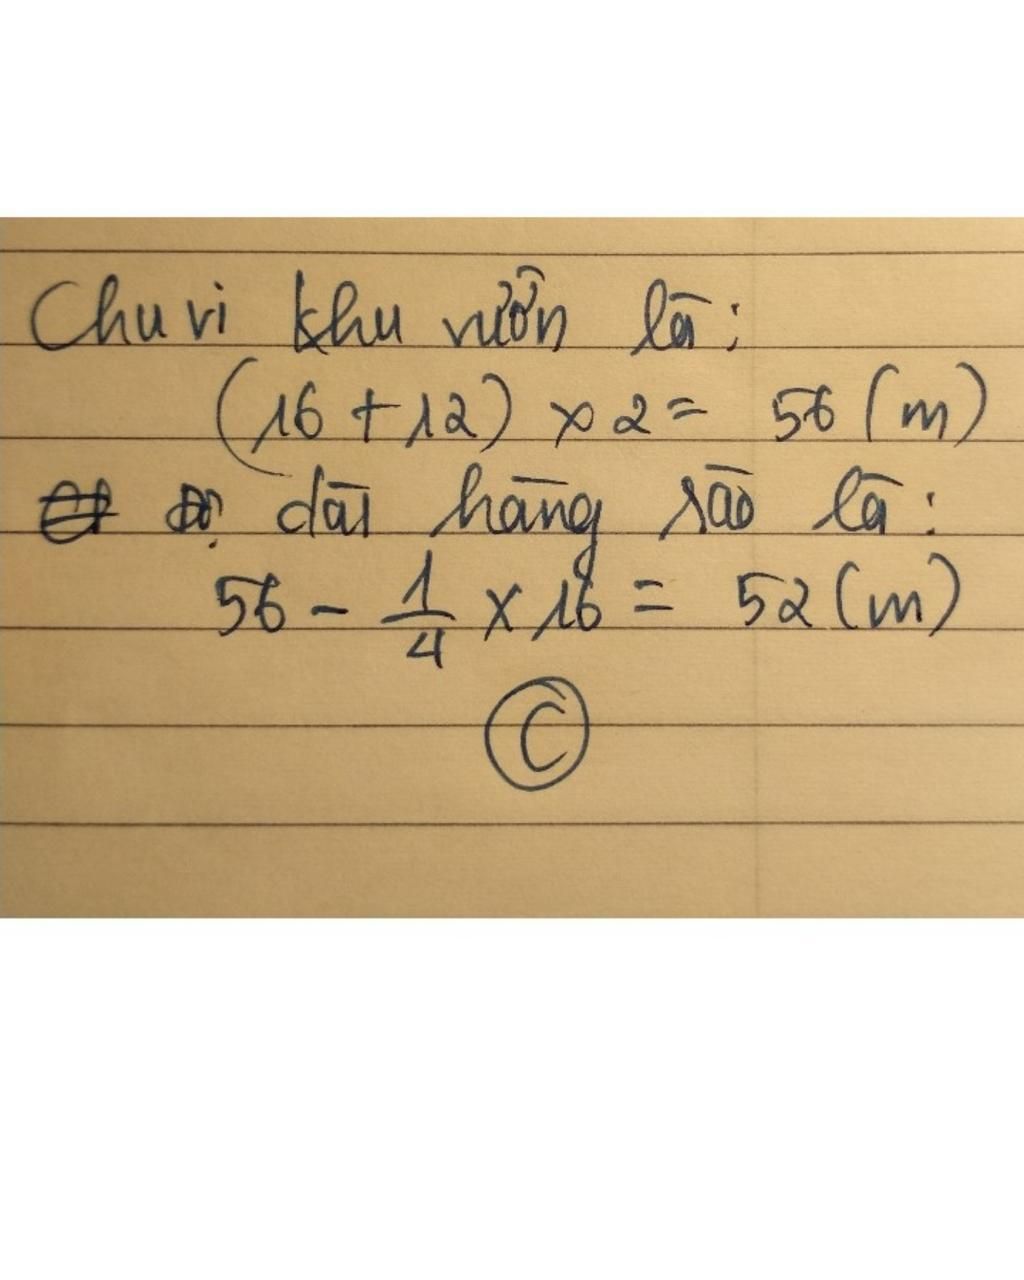 Chu vi khu vườn là:
(16 + 12) × 2 = 56 (m)
Độ dài hàng rào là:
56 - 1/4 × 16 = 52 (m)
C